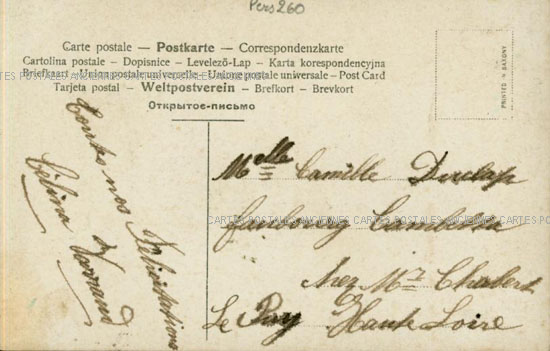 Pers260
Carte postale — Postkarte — Correspondenzkarte
Cartolina postale – Dopisnice – Levelező-Lap – Karta korespondencyjna
Briefkaart - Union postale universelle - Unione postale universale - Post Card
Tarjeta postal — Weltpostverein — Brefkort - Brevkort
Открытое-письмо
PRINTED IN SAXONY
CARTES POSTALES ANCIENNES CARTES POSTALES ANCIENNES CARTES POSTALES
Toutes nos félicitations
Célina
Melle Camille
faubourg Gambetta
chez Mr Chabert
Le Puy Haute Loire